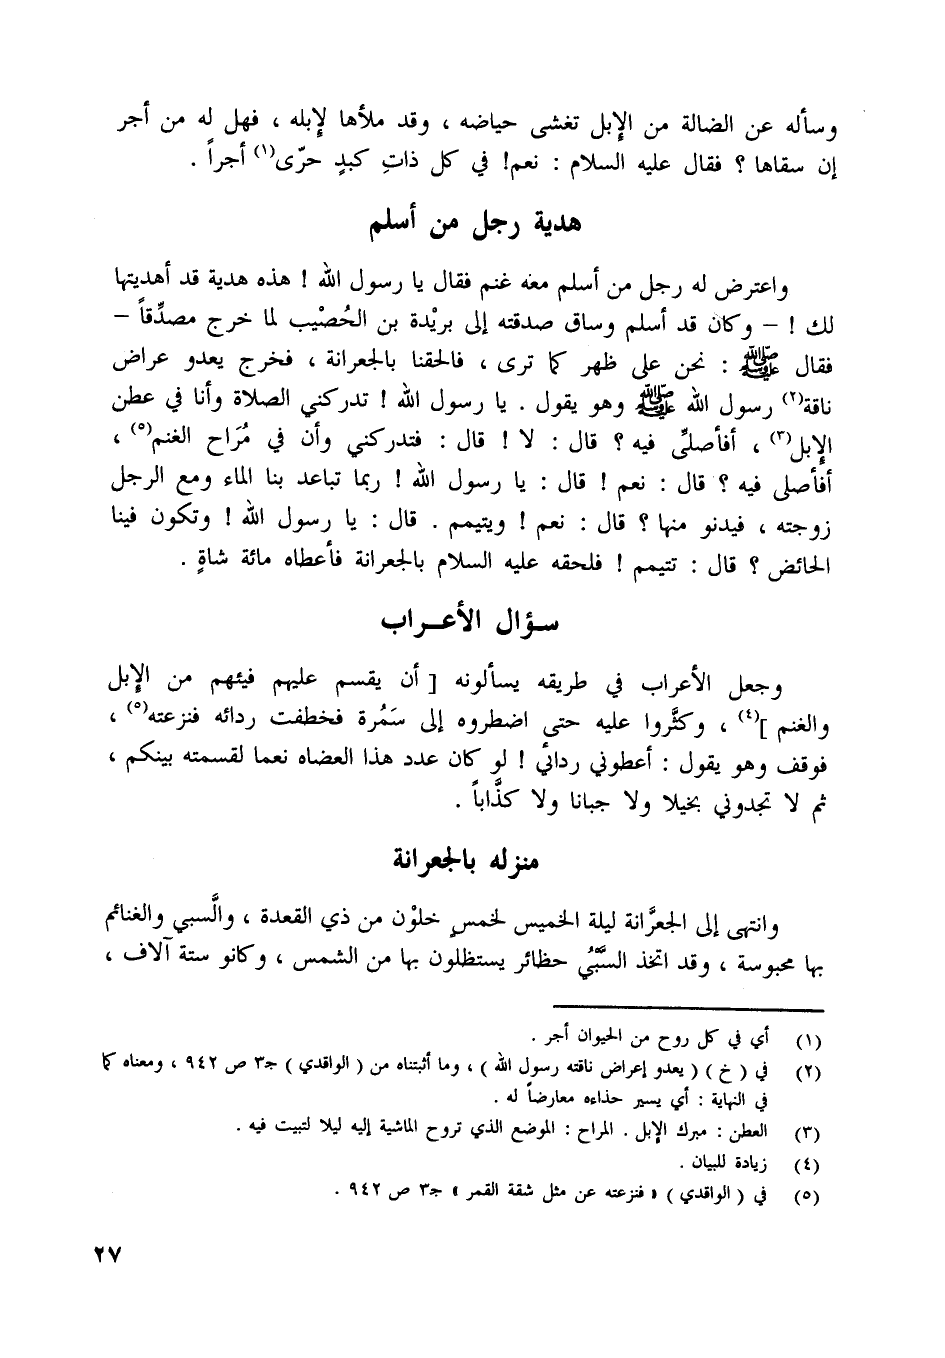 وسأله عن الضالة من الإبل تغشى حياضه ، وقد ملأها لإبله ، فهل له من أجر
إن سقاها ؟ فقال عليه السلام : نعم! في كل ذاتِ كبدٍ حرّى(١) أجراً .
هدية رجل من أسلم
واعترض له رجل من أسلم معه غنم فقال يا رسول الله ! هذه هدية قد أهديتها
لك ! – وكان قد أسلم وساق صدقته إلى بريْدة بن الحُصْيب لما خرج مصدِّقاً –
فقال ﷺ : نحن على ظهر كما ترى ، فالحقنا بالجعرانة ، فخرج يعدو عراض
ناقة(٢) رسول الله ﷺ وهو يقول . يا رسول الله ! تدركني الصلاة وأنا في عطن
الإبل(٣) ، أفأصلّى فيه ؟ قال : لا ! قال : فتدركني وأن في مُرَاح الغنم(٥) ،
أفأصلى فيه ؟ قال : نعم ! قال : يا رسول الله ! ربما تباعد بنا الماء ومع الرجل
زوجته ، فيدنو منها ؟ قال : نعم ! ويتيمم . قال : يا رسول الله ! وتكون فينا
الحائض ؟ قال : تتيمم ! فلحقه عليه السلام بالجعرانة فأعطاه مائة شاةٍ .
سؤال الأعراب
وجعل الأعراب في طريقه يسألونه [ أن يقسم عليهم فيئهم من الإبل
والغنم ](٤) ، وكثَّروا عليه حتى اضطروه إلى سَمُرة فخطفت ردائه فنزعته(٥) ،
فوقف وهو يقول : أعطوني ردائي ! لو كان عدد هذا العضاه نعما لقسمته بينكم ،
ثم لا تجدوني بخيلا ولا جبانا ولا كذَّاباً .
منزله بالجعرانة
وانتهى إلى الجعرَّانة ليلة الخميس لخمسٍ خلوْن من ذي القعدة ، والَّسبي والغنائم
بها محبوسة ، وقد اتخذ السَّبْيُ حظائر يستظلون بها من الشمس ، وكانو ستة آلاف ،
(١) أي في كل روح من الحيوان أجر .
(٢) في ( خ ) ( يعدو إعراض ناقته رسول الله ) ، وما أثبتناه من ( الواقدي ) جـ٣ ص ٩٤٢ ، ومعناه كما
في النهاية : أي يسير حذاءه معارضاً له .
(٣) العطن : مبرك الإبل . المراح : الموضع الذي تروح الماشية إليه ليلا لتبيت فيه .
(٤) زيادة للبيان .
(٥) في ( الواقدي ) « فنزعته عن مثل شقة القمر » جـ٣ ص ٩٤٢ .
٢٧